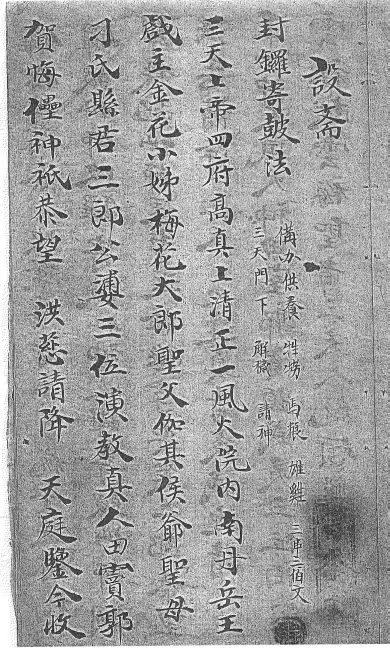 設斋
封鑼寄皷法
備办供養 牲烤 馬粮 雄雞 三串二伯文
三天門下 解穢 請神
三天上帝四府高真上清正一風火院内南丹岳王
戲主金花小姊梅花大郎聖父伽其侯爺聖母
刁氏縣君三郎公婆三位演教真人田竇郭
賀悔儡神祇恭望 洪慈請降 天庭鑒今收